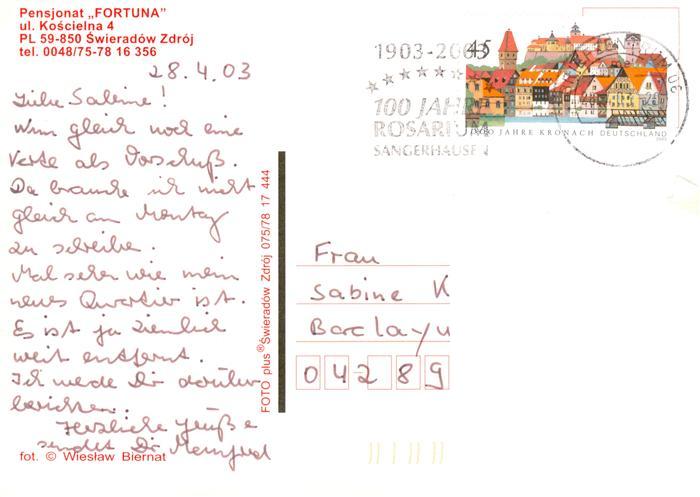 Pensjonat „FORTUNA”
ul. Kościelna 4
PL 59-850 Świeradów Zdrój
tel. 0048/75-78 16 356
28.4.03
Liebe Sabine!
Nun gleich noch eine
Karte als Vorschuß.
Da brauche ich nicht
gleich am Montag
zu schreiben.
Mal sehen wie mein
neues Quartier ist.
Es ist ja ziemlich
weit entfernt.
Ich werde Dir darüber
berichten.
Herzliche Grüße
sendet Dir Manfred
fot. © Wiesław Biernat
FOTO plus ® Świeradów Zdrój 075/78 17 444
1903-2003
100 JAHRE
ROSARIUM
SANGERHAUSEN
45
1000 JAHRE KRONACH DEUTSCHLAND
Frau
Sabine K
Barclayu
04289